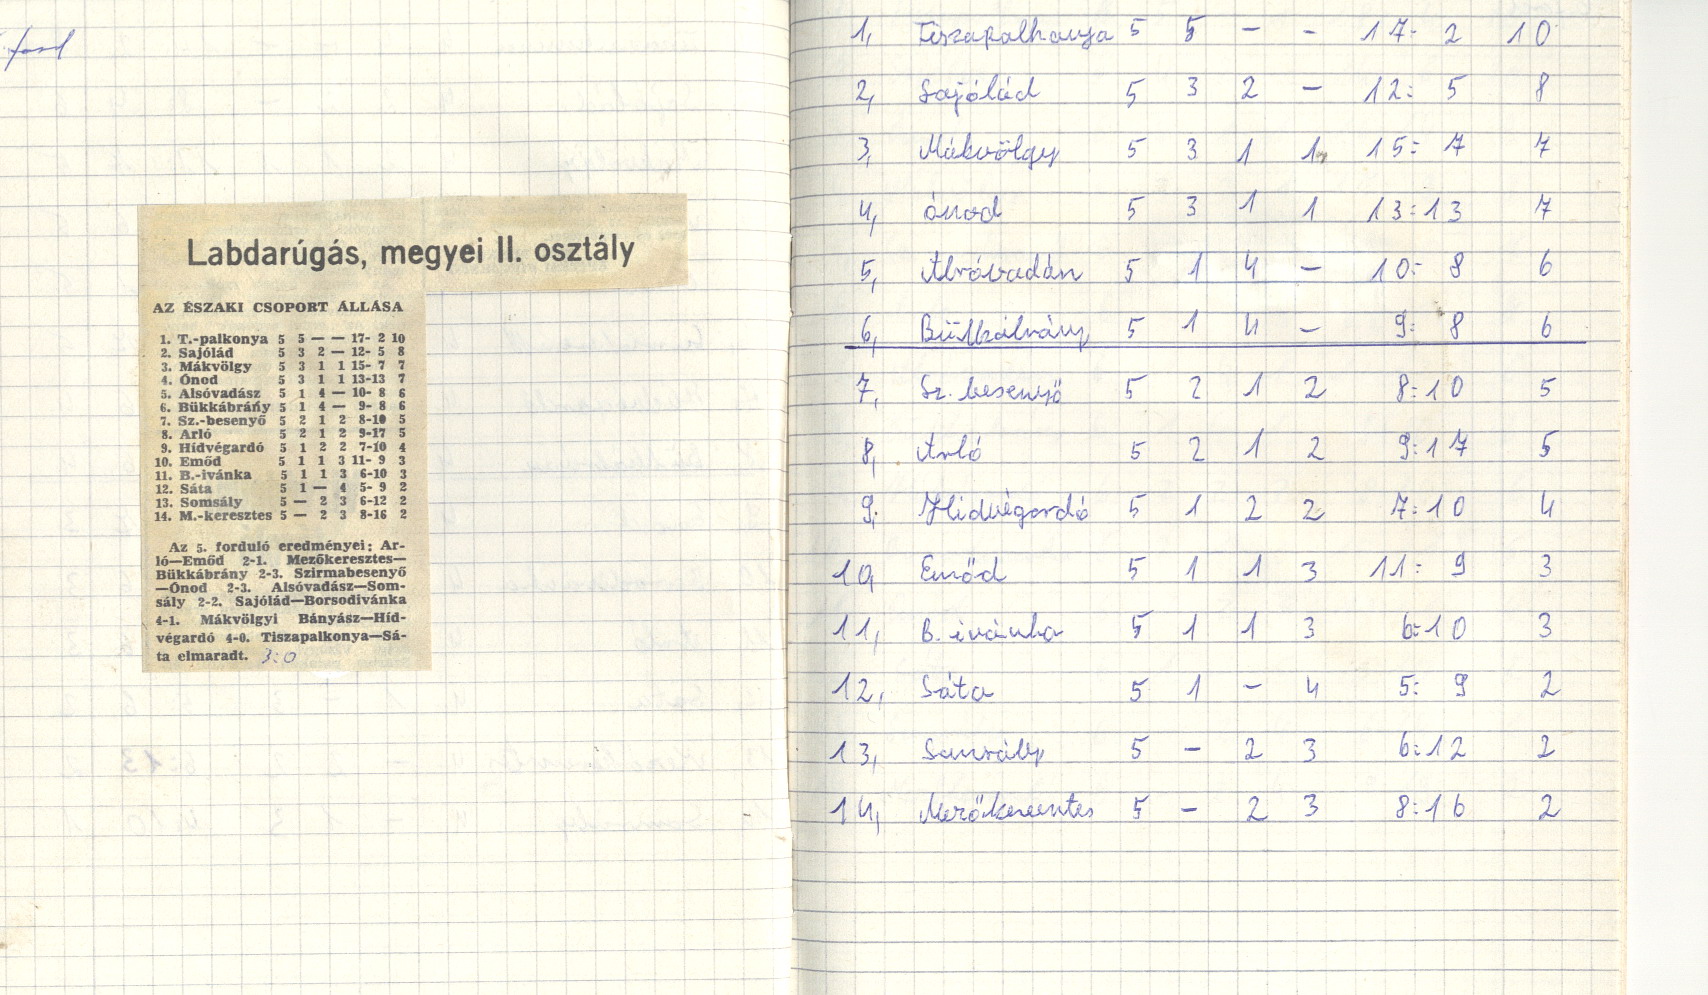 ford
Labdarúgás, megyei II. osztály
AZ ÉSZAKI CSOPORT ÁLLÁSA
1. T.-palkonya 5 5 — — 17- 2 10
2. Sajólád 5 3 2 — 12- 5 8
3. Mákvölgy 5 3 1 1 15- 7 7
4. Ónod 5 3 1 1 13-13 7
5. Alsóvadász 5 1 4 — 10- 8 6
6. Bükkábrány 5 1 4 — 9- 8 6
7. Sz.-besenyő 5 2 1 2 8-10 5
8. Arló 5 2 1 2 9-17 5
9. Hídvégardó 5 1 2 2 7-10 4
10. Emőd 5 1 1 3 11- 9 3
11. B.-ivánka 5 1 1 3 6-10 3
12. Sáta 5 1 — 4 5- 9 2
13. Somsály 5 — 2 3 6-12 2
14. M.-keresztes 5 — 2 3 8-16 2
Az 5. forduló eredményei: Ar-
ló—Emőd 2-1. Mezőkeresztes—
Bükkábrány 2-3. Szirmabesenyő
—Ónod 2-3. Alsóvadász—Som-
sály 2-2. Sajólád—Borsodivánka
4-1. Mákvölgyi Bányász—Híd-
végardó 4-0. Tiszapalkonya—Sá-
ta elmaradt. 3:0
1, Tiszapalkonya 5 5 – – 17: 2 10
2, Sajólád 5 3 2 – 12: 5 8
3, Mákvölgy 5 3 1 1 15: 7 7
4, ónod 5 3 1 1 13:13 7
5, Alsóvadász 5 1 4 – 10: 8 6
6, Bükkábrány 5 1 4 – 9: 8 6
7, Sz. besenyő 5 2 1 2 8:10 5
8, Arló 5 2 1 2 9:17 5
9, Hidvégardó 5 1 2 2 7:10 4
10, Emőd 5 1 1 3 11: 9 3
11, B. ivánka 5 1 1 3 6:10 3
12, Sáta 5 1 – 4 5: 9 2
13, Somsály 5 – 2 3 6:12 2
14, Mezőkeresztes 5 – 2 3 8:16 2